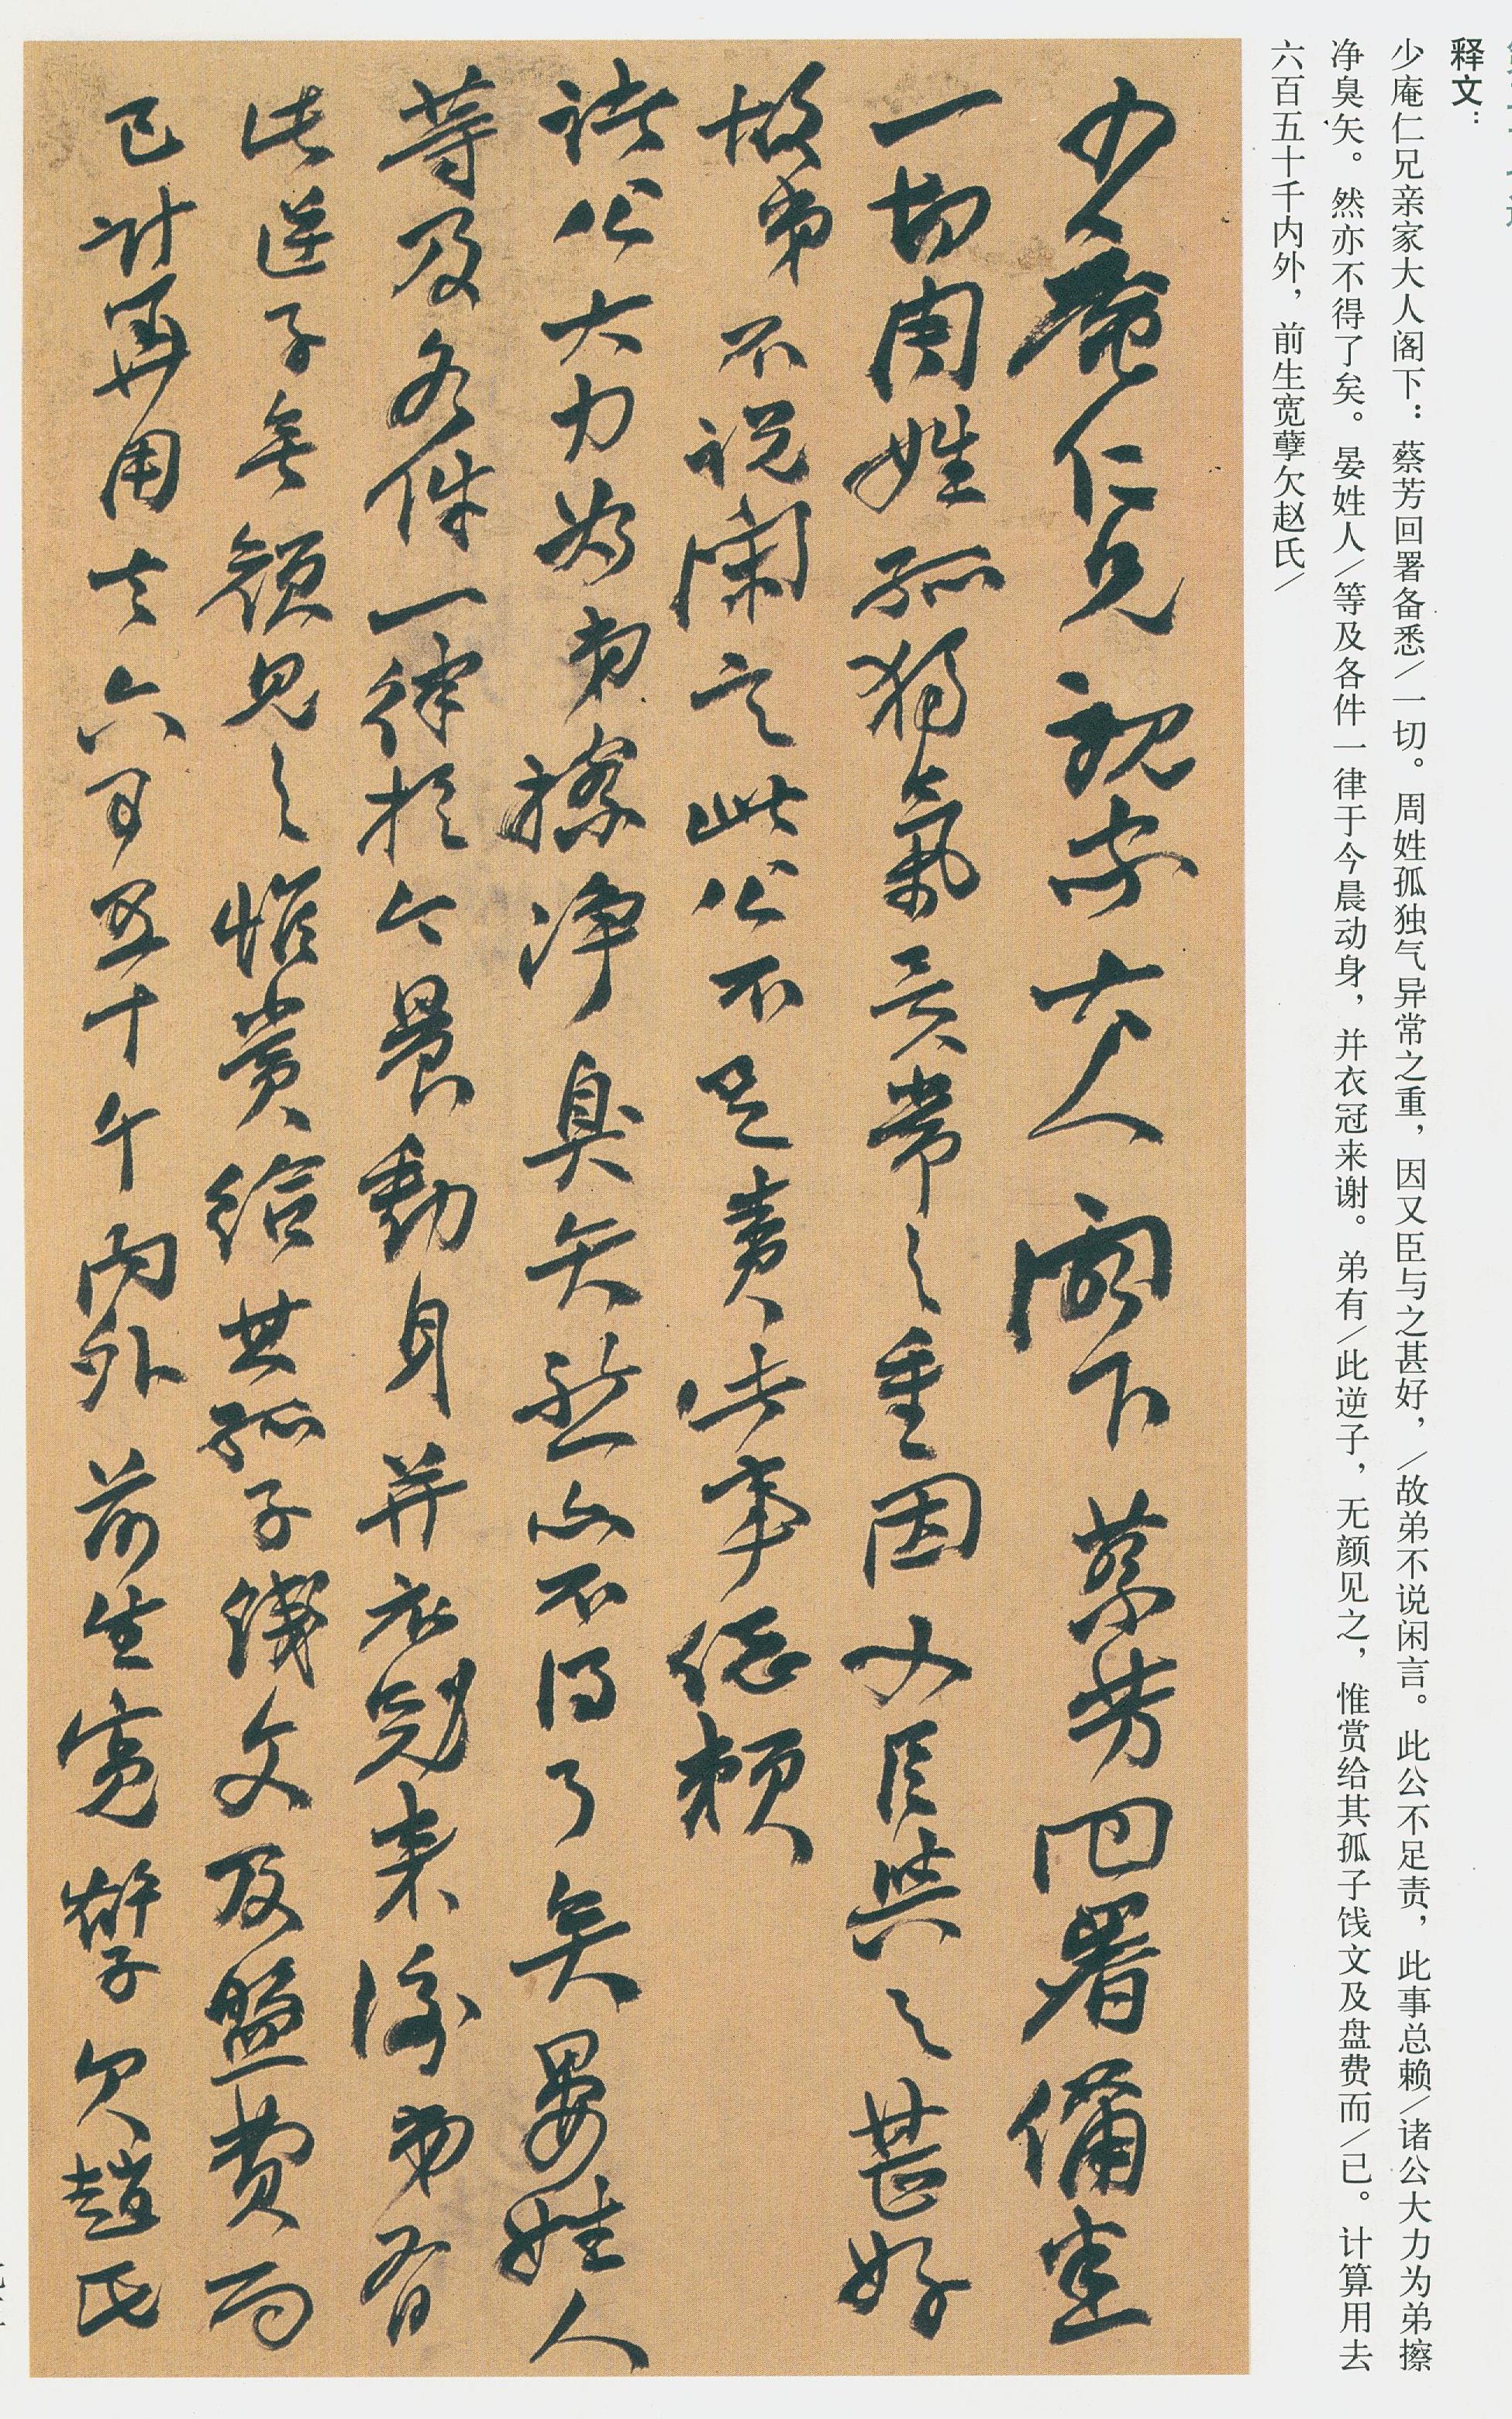 释文：
少庵仁兄亲家大人阁下：蔡芳回署备悉／一切。周姓孤独气异常之重，因又臣与之甚好，／故弟不说闲言。此公不足责，此事总赖／诸公大力为弟擦
净臭矢。然亦不得了矣。晏姓人／等及各件一律于今晨动身，并衣冠来谢。弟有／此逆子，无颜见之，惟赏给其孤子饯文及盘费而／已。计算用去
六百五十千内外，前生宽孽欠赵氏／
少庵仁兄親家大人閣下蔡芳回署備悉
一切周姓孤獨氣異常之重因又臣與之甚好
故弟不説閑言此公不足責此事總賴
諸公大力為弟擦淨臭矢然亦不得了矣晏姓人
等及各件一律於今晨動身并衣冠来謝弟有
此逆子無顔見之惟賞給其孤子餞文及盤費而
已計算用去六百五十千内外前生寬孽欠趙氏